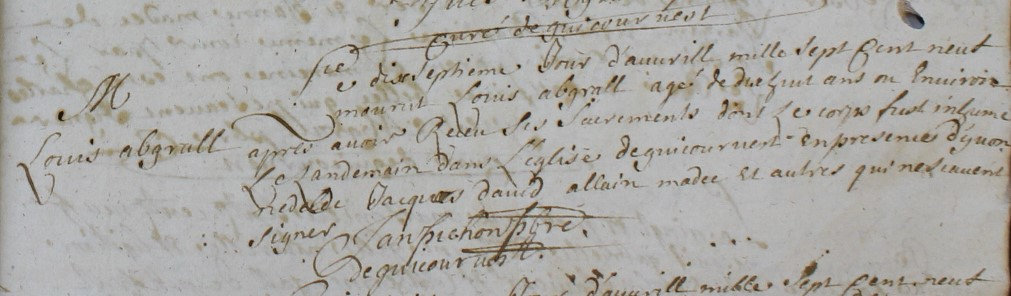 curé de guicourvest
M
Louis abgrall
dixseptieme Jour d'avvrill mille sept Cent neuf
mourut Louis abgrall agé de dixhuit ans ou Environ
apres avoir Receu Ses Sacrements dont Le corps fust inhumé
Le Landemain dans L'eglise de guicourvest En presence d'yvon
Jacques david allain madec Et autres qui ne scavent
signer
de guicourvest.
d'avvrill mille sept Cent neuf